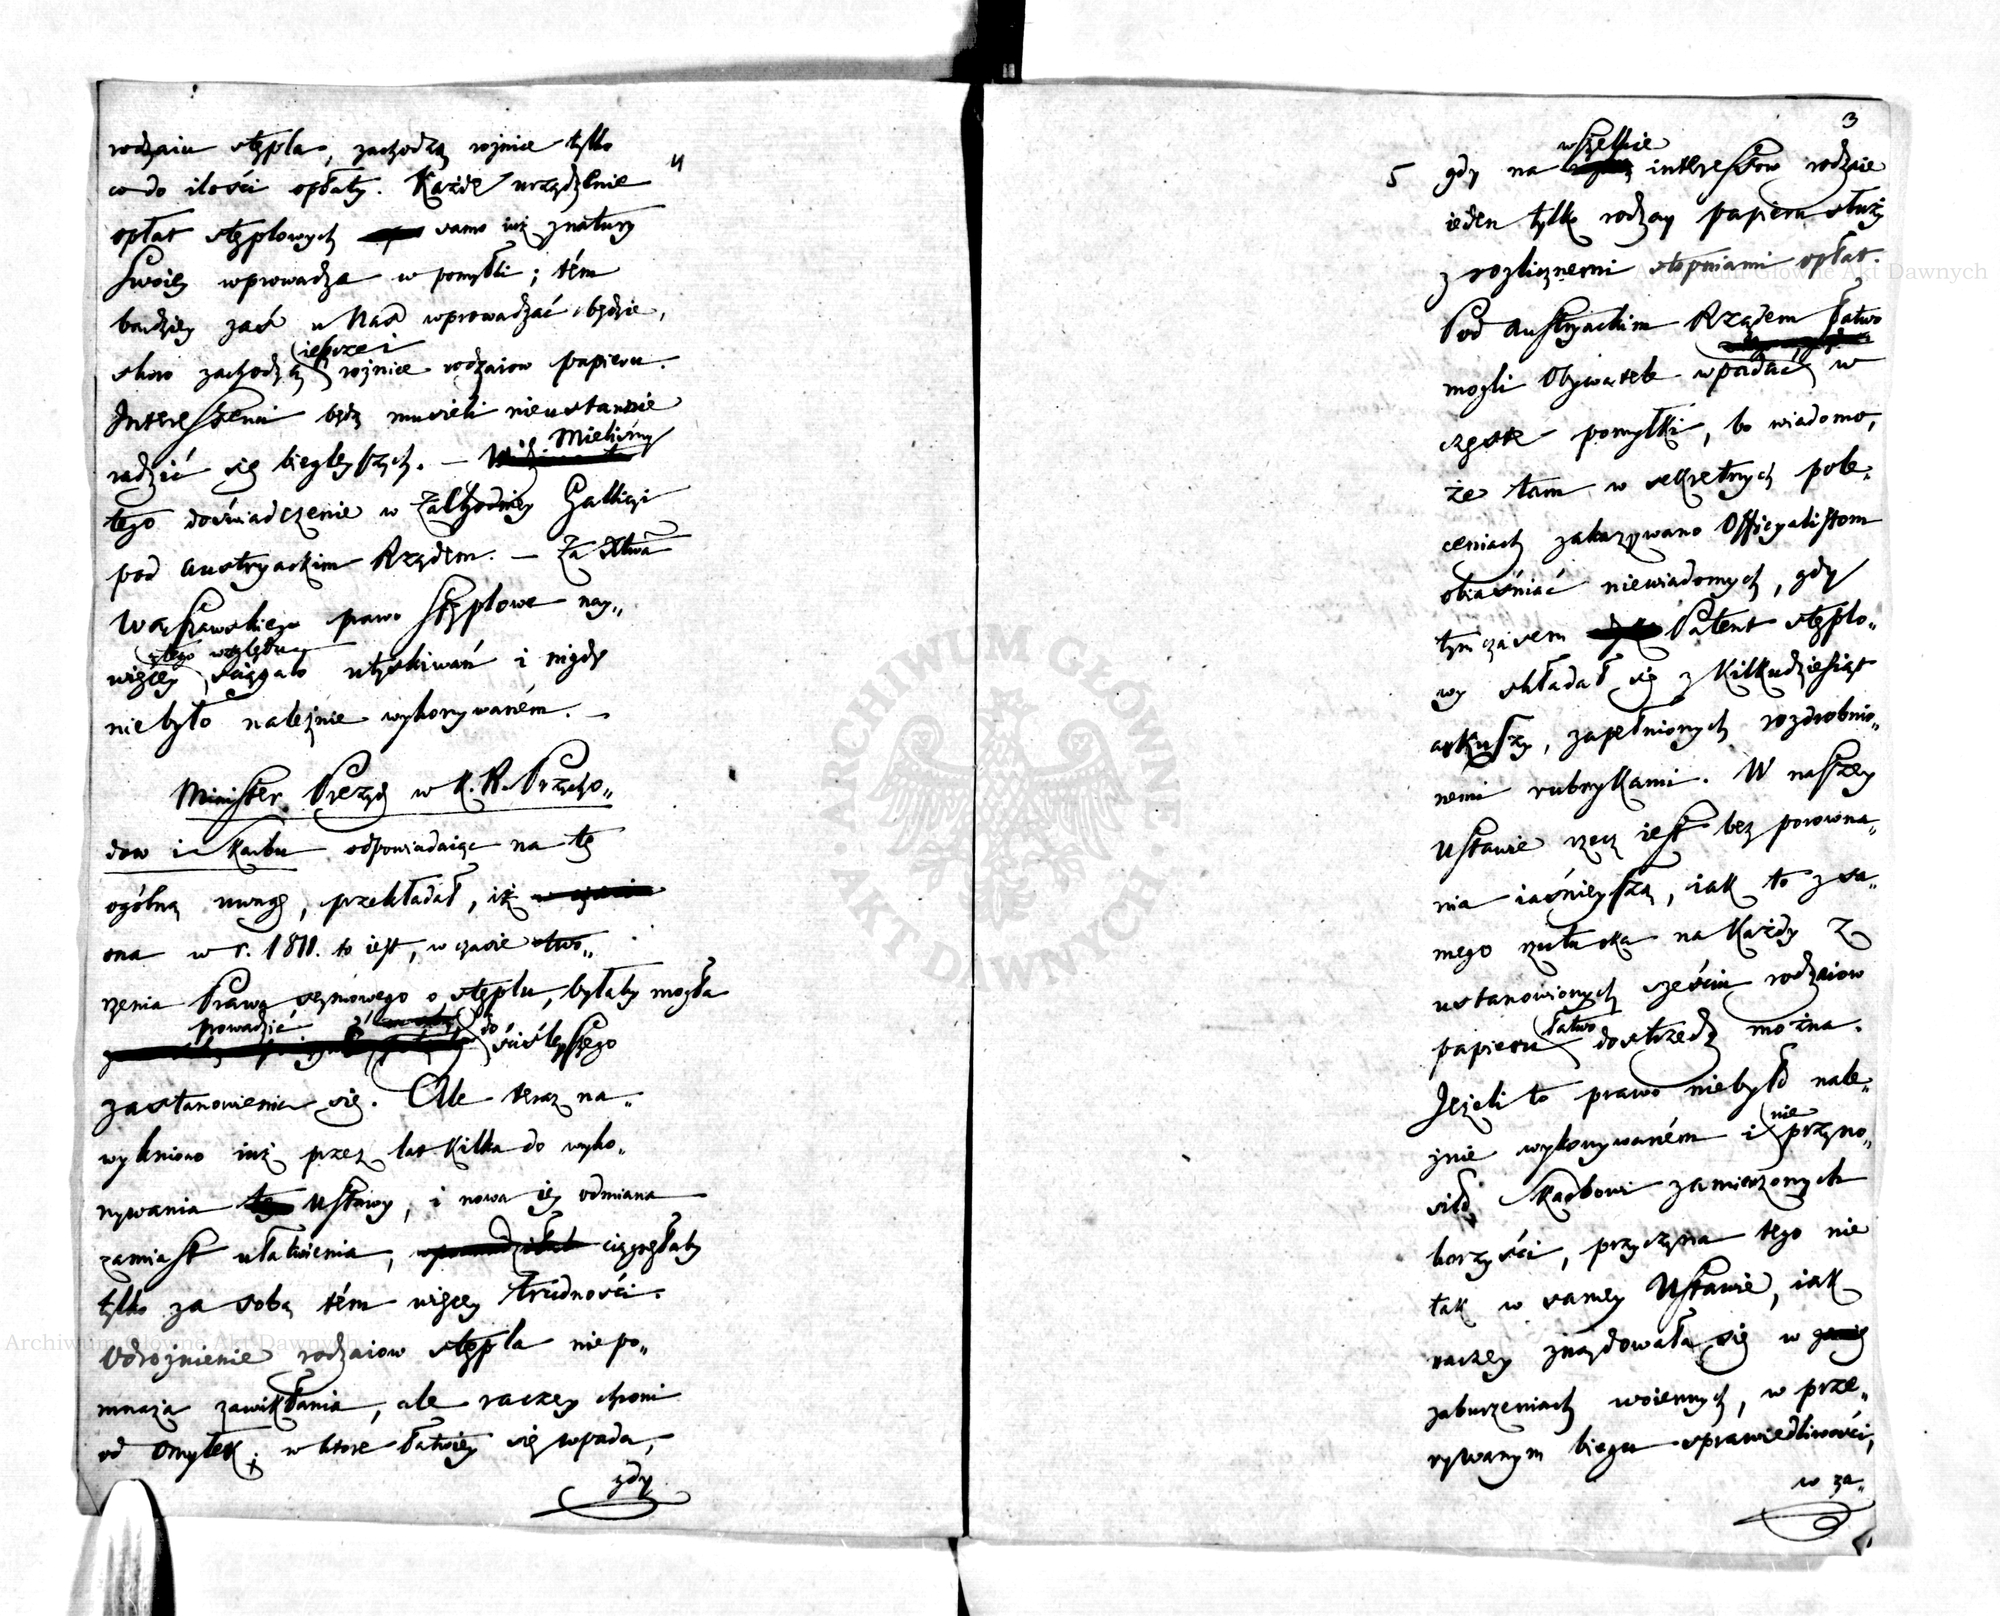 rodzaiu stępla, zachodzą rożnice tylko
4
co do ilości opłaty. Każde urządzenie
opłat stęplowych samo iuż z natury
swoiey wprowadza w pomyłki; tém
bardziey zaś u Nas wprowadzać będzie,
ieszcze i
skoro zachodzą rożnice rodzaiow papieru.
Interessenci będą musieli nieustannie
radzić się biegleyszych. — Mieliśmy
tego doświadczenie w Zachodniey Gallicyi
pod Austryackim Rządem. — Za Xtwa
Warszawskiego prawo stęplowe nay-
z tego względu
więcey ściągało utyskiwań i nigdy
niebyło należnie wykonywaném. —
Minister Prezyd w K. R. Przycho-
dow i Skarbu odpowiadaiąc na tę
ogólną uwagę, przekładał, iż w czasie
ona w r. 1811. to iest, w czasie two-
rzenia Prawa seymowego o stęplu, byłaby mogła
prowadzić do ściśleyszego
zastanowienia się. Ale teraz na-
wykniono iuż przez lat kilka do wyko-
nywania tey Ustawy, i nowa iey odmiana
zamiast ułatwienia, wprowadziłaby ciągnęłaby
tylko za sobą tém więcey trudności.
Odrożnienie rodzaiow stępla niepo-
mnaża zawikłania, ale raczey chroni
od omyłek; w ktore łatwiey się wpada,
gdy
3
wszelkie
5 gdy na interessow rodzaie
ieden tylko rodzay papieru służy
z rozlicznemi stopniami opłat.
Pod Austryackim Rządem łatwo
mogli Obywatele wpadać w
częste pomyłki, bo wiadomo,
że tam w sekretnych pole-
ceniach zakazywano Officyalistom
obiaśniać niewiadomych, gdy
tymczasem Patent stęplo-
wy składał się z kilkudziesiąt
arkuszy, zapełnionych rozdrobnio-
nemi rubrykami. W naszey
Ustawie rzecz iest bez porowna-
nia iaśnieyszą, iak to z sa-
mego rzutu oka na każdy z
ustanowionych sześciu rodzaiow
łatwo
papieru dostrzedz można.
Jeżeli to prawo niebyło nale-
nie
żnie wykonywaném i przyno-
siło Skarbowi zamierzonych
korzyści, przyczyna tego nie
tak w samey Ustawie, iak
raczey znaydowała się w
zaburzeniach woiennych, w prze-
rywanym biegu sprawiedliwości,
w za-
ARCHIWUM GŁÓWNE AKT DAWNYCH
Archiwum Główne Akt Dawnych
Archiwum Główne Akt Dawnych